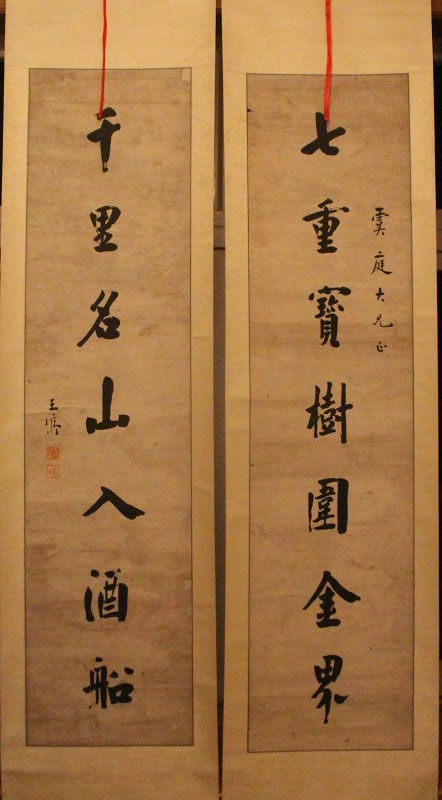 虞庭大兄正
七重寶樹圍金界
千里名山入酒船
王